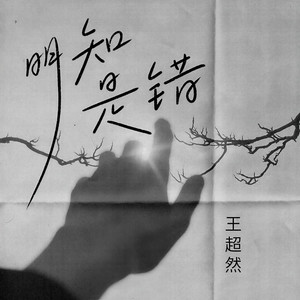 明知是错
王超然